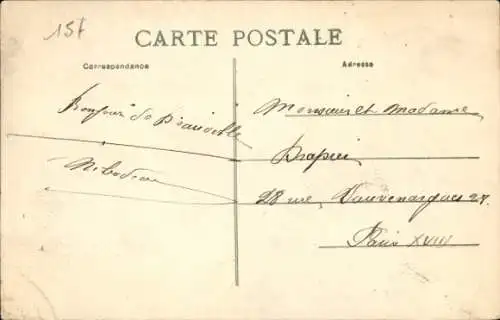 15f
CARTE POSTALE
Correspondance
Adresse
Bonjour de
Monsieur et Madame
Drapier
28 rue Vauvenargues 27
Paris XVIII